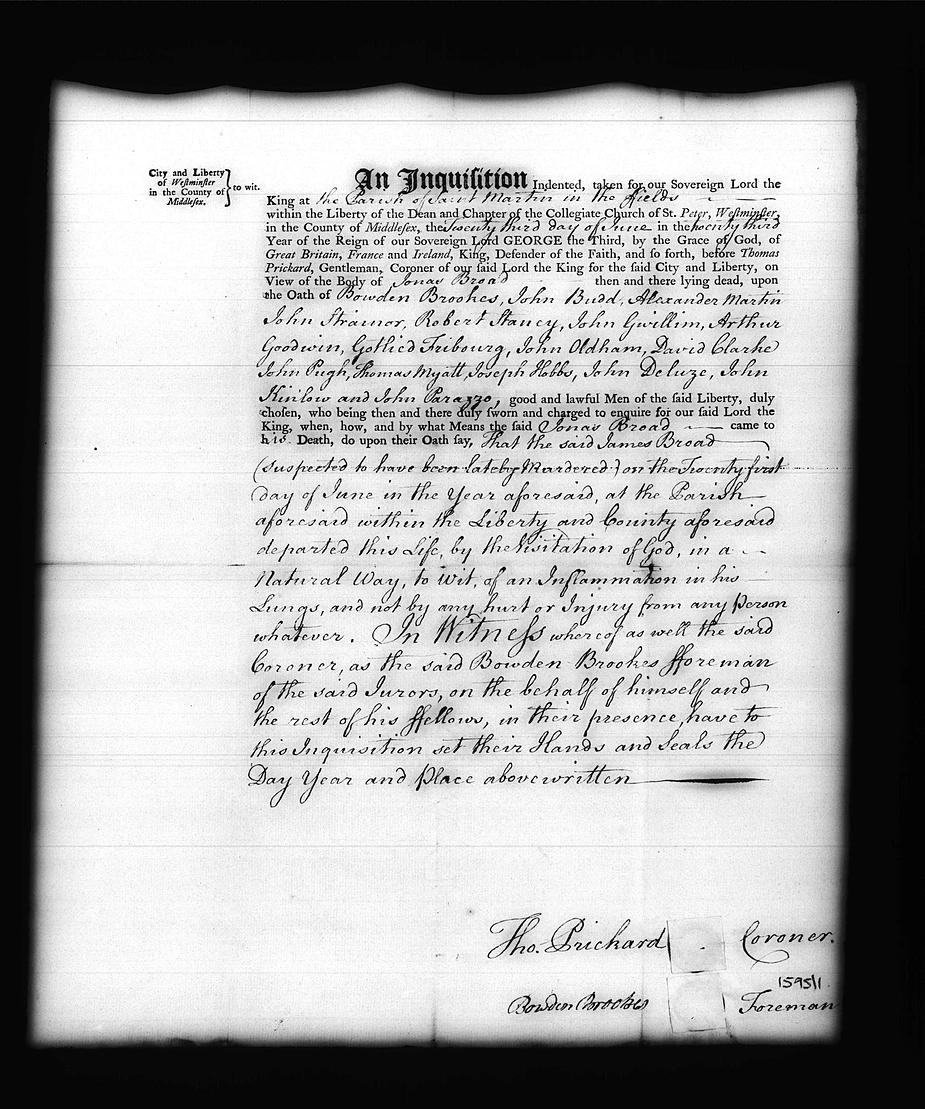 City and Liberty
of Westminster
in the County of
Middlesex.
} to wit.
An Inquisition Indented, taken for our Sovereign Lord the
King at the Parish of Saint Martin in the ffields
within the Liberty of the Dean and Chapter of the Collegiate Church of St. Peter, Westminster,
in the County of Middlesex, the Twenty third day of June in the twenty third
Year of the Reign of our Sovereign Lord GEORGE the Third, by the Grace of God, of
Great Britain, France and Ireland, King, Defender of the Faith, and so forth, before Thomas
Prickard, Gentleman, Coroner of our said Lord the King for the said City and Liberty, on
View of the Body of Jonas Broad then and there lying dead, upon
the Oath of Bowden Brookes, John Budd, Alexander Martin
John Strainor, Robert Stancy, John Gwillim, Arthur
Goodwin, Gotlied Fribourg, John Oldham, David Clarke
John Pugh, Thomas Myatt, Joseph Hobbs, John Deluze, John
Kinlow and John Parazzo, good and lawful Men of the said Liberty, duly
chosen, who being then and there duly sworn and charged to enquire for our said Lord the
King, when, how, and by what Means the said Jonas Broad came to
his Death, do upon their Oath say, That the said James Broad
(suspected to have been lately Murdered) on the Twenty first
day of June in the Year aforesaid, at the Parish
aforesaid within the Liberty and County aforesaid
departed this Life, by the Visitation of God, in a
Natural Way, to wit, of an Inflammation in his
Lungs, and not by any hurt or Injury from any person
whatever. In Witness whereof as well the said
Coroner, as the said Bowden Brookes fforeman
of the said Jurors, on the behalf of himself and
the rest of his ffellows, in their presence, have to
this Inquisition set their Hands and Seals the
Day Year and place abovewritten
Tho. Prickard Coroner.
1595/1
Bowden Brookes Foreman